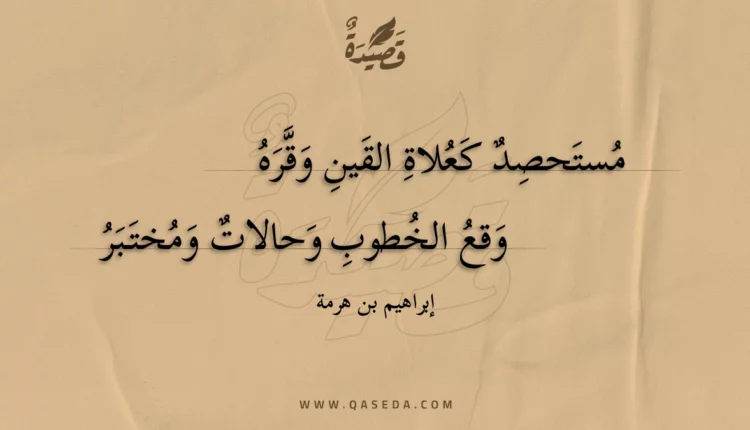 قَصِيدَةٌ
مُستَحصِدٌ كَعُلاةِ القَينِ وَقَّرَهُ
وَقعُ الخُطوبِ وَحالاتٌ وَمُختَبَرُ
إبراهيم بن هرمة
WWW.QASEDA.COM